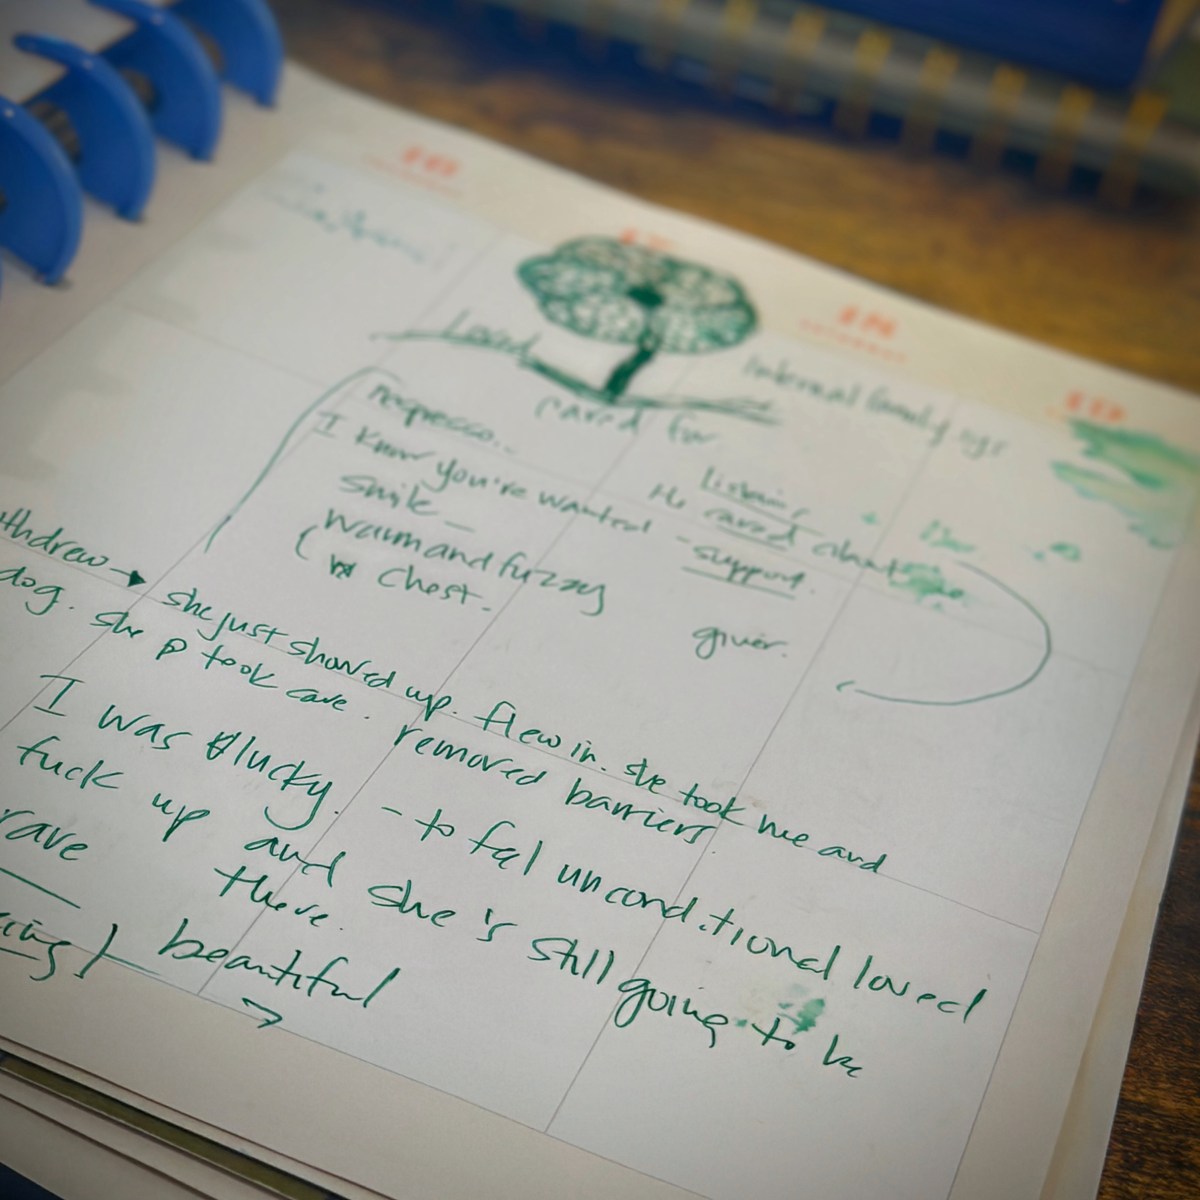 Loved
cared for
Internal family sys
I know you're wanted
listening
smile —
He cared about me
warm and fuzzy
- support.
chest.
giver.
thdrew → she just showed up. flew in. she took me and
dog. she took care. removed barriers.
I was lucky. - to fel unconditional loved
fuck up and she's still going to be
there.
rave
beautiful